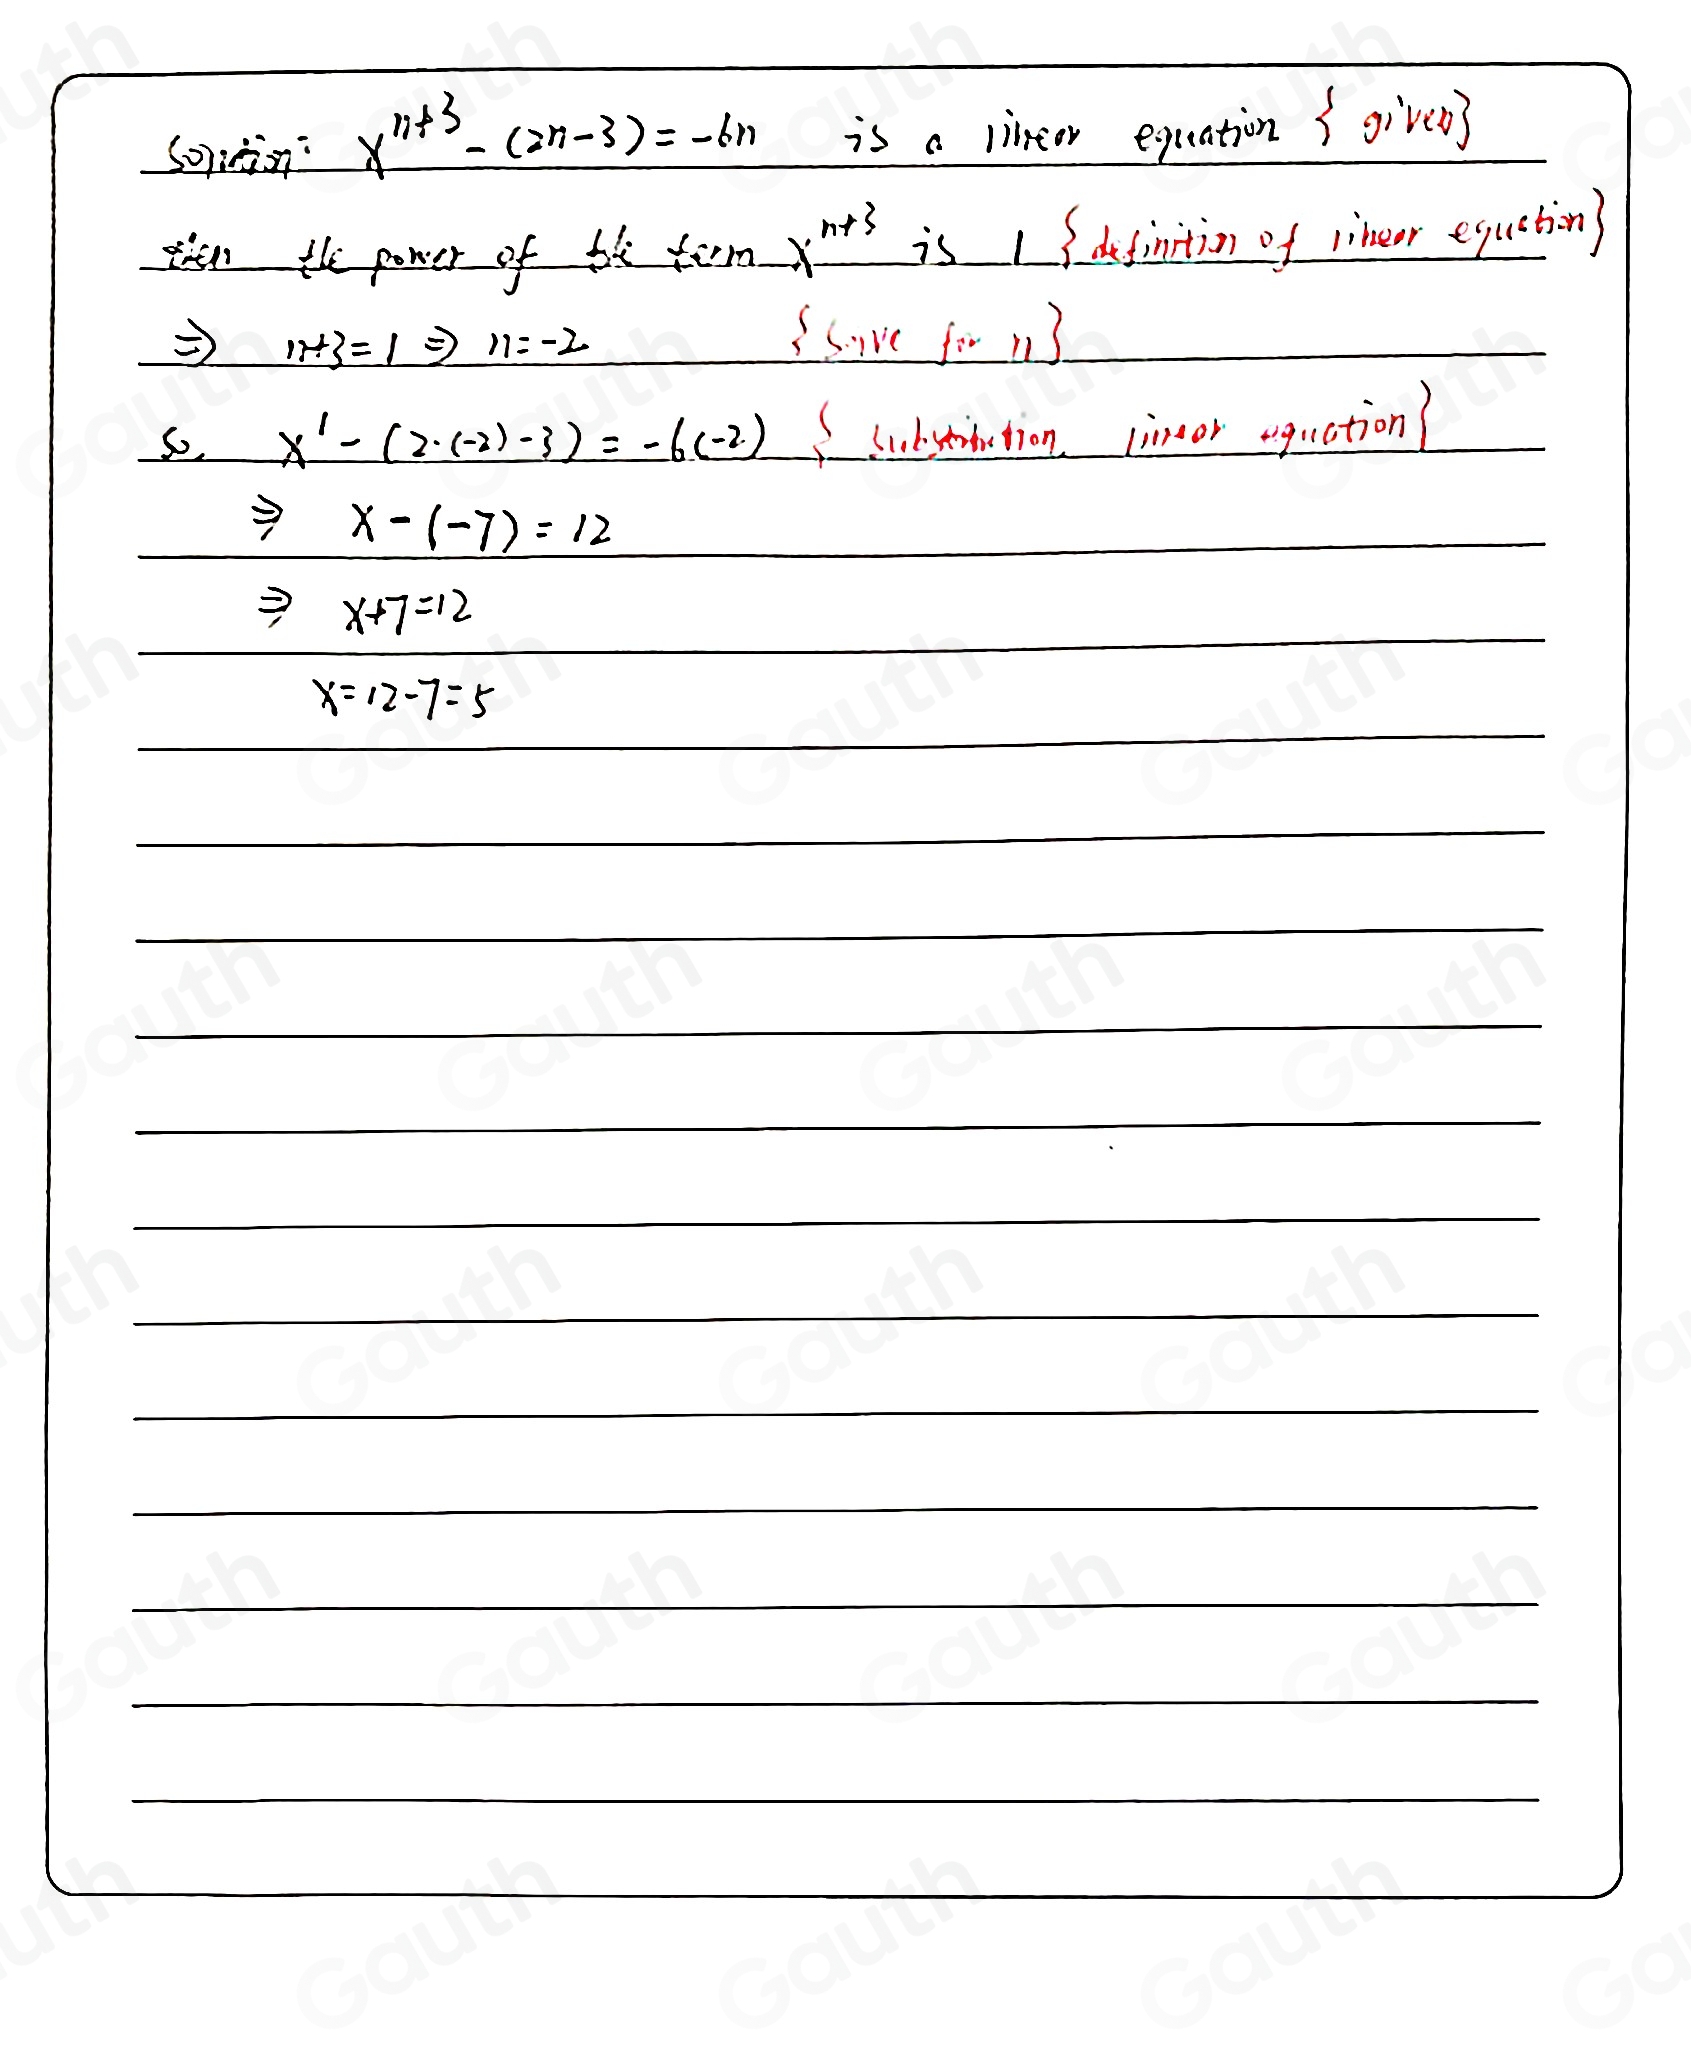 Solution: x^{n+3} - (2n-3) = -6n is a linear equation { given}
then the power of the term x^{n+3} is 1 {definition of linear equation}
⇒ n+3=1 ⇒ n=-2 {solve for n}
So, x^1 - (2·(-2)-3) = -6(-2) { substitution, linear equation}
⇒ x-(-7)=12
⇒ x+7=12
x=12-7=5